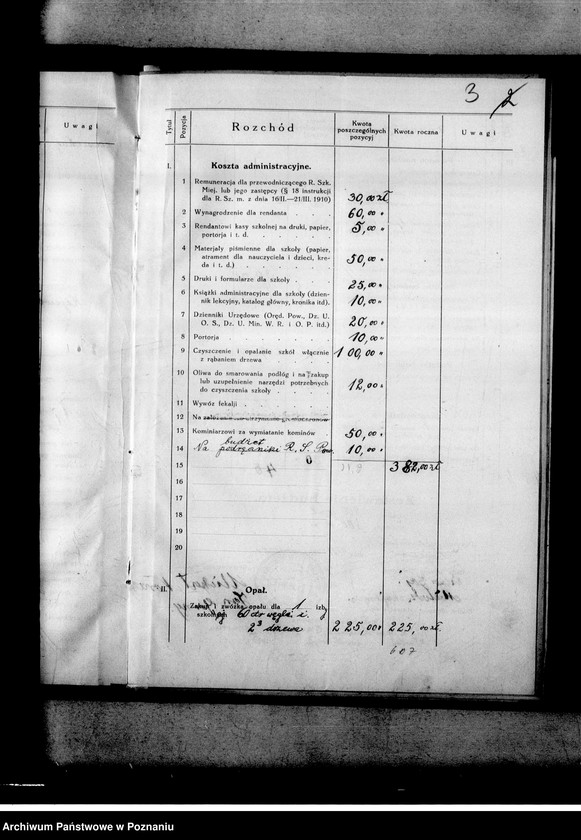 3
Uwagi
Tytuł Pozycja Rozchód Kwota poszczególnych pozycyj Kwota roczna Uwagi
I. Koszta administracyjne.
1 Remuneracja dla przewodniczącego R. Szk.
Miej. lub jego zastępcy (§ 18 instrukcji
dla R. Sz. m. z dnia 16/II.—21/III. 1910) 30,00 zł
2 Wynagrodzenie dla rendanta . . . . 60,00 "
3 Rendantowi kasy szkolnej na druki, papier,
portorja i t. d. . . . . . 5,00 "
4 Materjały piśmienne dla szkoły (papier,
atrament dla nauczyciela i dzieci, kre-
da i t. d.) . . . . . . 50,00 "
5 Druki i formularze dla szkoły . . . 25,00 "
6 Książki administracyjne dla szkoły (dzien-
nik lekcyjny, katalog główny, kronika itd). 10,00 "
7 Dzienniki Urzędowe (Oręd. Pow., Dz. U.
O. S., Dz. U. Min. W. R. i O. P. itd.) 20,00 "
8 Portorja . . . . . . . 10,00 "
9 Czyszczenie i opalanie szkół włącznie
z rąbaniem drzewa . . . . . 100,00 "
10 Oliwa do smarowania podłóg i na zakup
lub uzupełnienie narzędzi potrzebnych
do czyszczenia szkoły . . . . 12,00 "
11 Wywóz fekalji . . . . . .
12 Na
13 Kominiarzowi za wymiatanie kominów 50,00 "
budżet
14 Na podręczniki R. S. Pow. 10,00 "
15 382,00 zł
16
17
18
19
20
II. Opał.
Zakup i zwózka opału dla 1 izby
szkolnej 60 ctr węgla i
2³ drzewa 225,00 " 225,00 zł
607
Archiwum Państwowe w Poznaniu